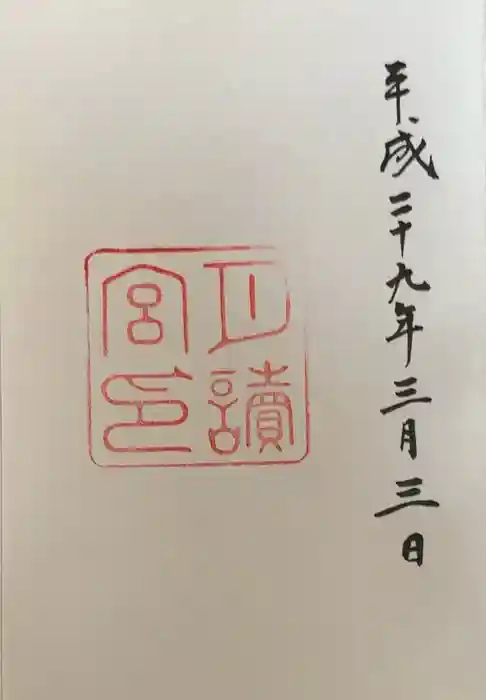 平成二十九年三月三日
月讀
宮印